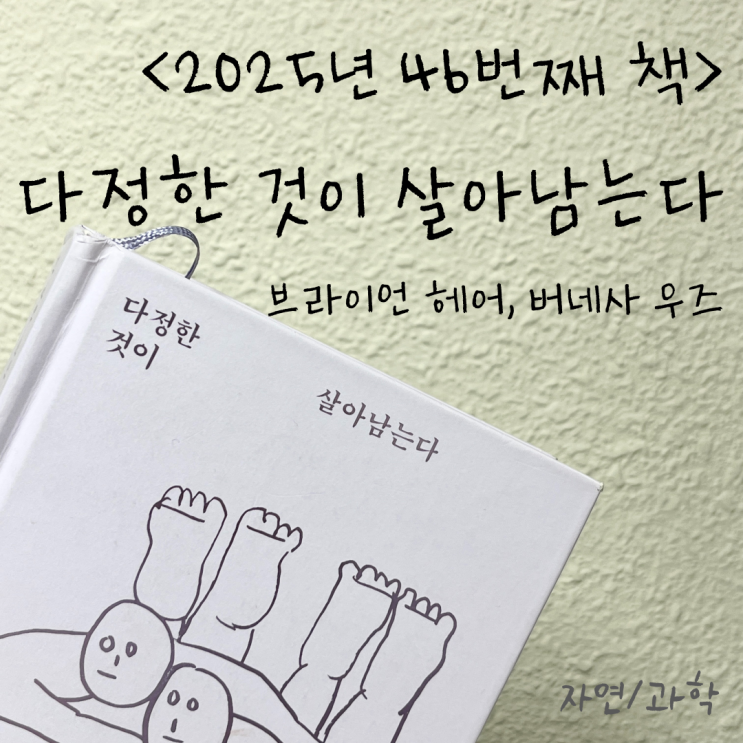 <2025년 46번째 책>
다정한 것이 살아남는다
브라이언 헤어, 버네사 우즈
다정한
것이
살아남는다
자연/과학